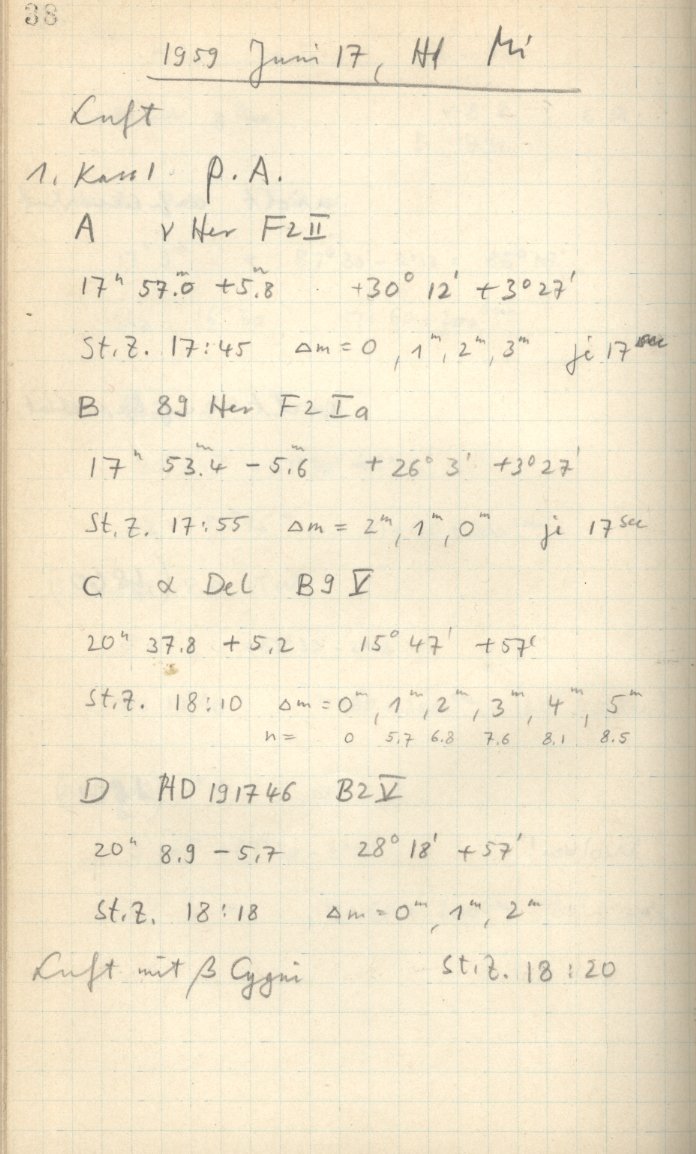 38
1959 Juni 17, Hf Mi
Luft
1. Kass1. P.A.
A ν Her F2 II
17ʰ 57.ᵐ0 +5.ᵐ8 +30° 12' +3°27'
St.Z. 17:45 Δm = 0, 1ᵐ, 2ᵐ, 3ᵐ je 17 sec
B 89 Her F2 Ia
17ʰ 53.ᵐ4 – 5.ᵐ6 + 26° 3' +3°27'
St.Z. 17:55 Δm = 2ᵐ, 1ᵐ, 0ᵐ je 17 sec
C α Del B9 V
20ʰ 37.8 + 5.2 15° 47' +57'
St.Z. 18:10 Δm = 0ᵐ, 1ᵐ, 2ᵐ, 3ᵐ, 4ᵐ, 5ᵐ
n = 0 5.7 6.8 7.6 8.1 8.5
D HD 191746 B2 V
20ʰ 8.9 – 5,7 28° 18' +57'
St.Z. 18:18 Δm = 0ᵐ, 1ᵐ, 2ᵐ
Luft mit β Cygni St.Z. 18:20